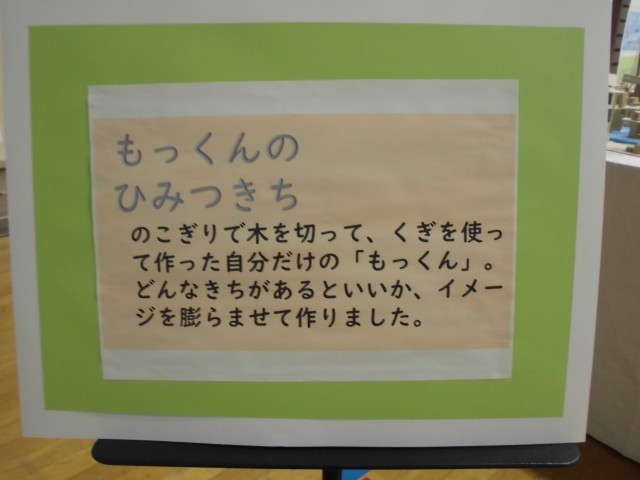 もっくんの
ひみつきち
のこぎりで木を切って、くぎを使っ
て作った自分だけの「もっくん」。
どんなきちがあるといいか、イメー
ジを膨らませて作りました。